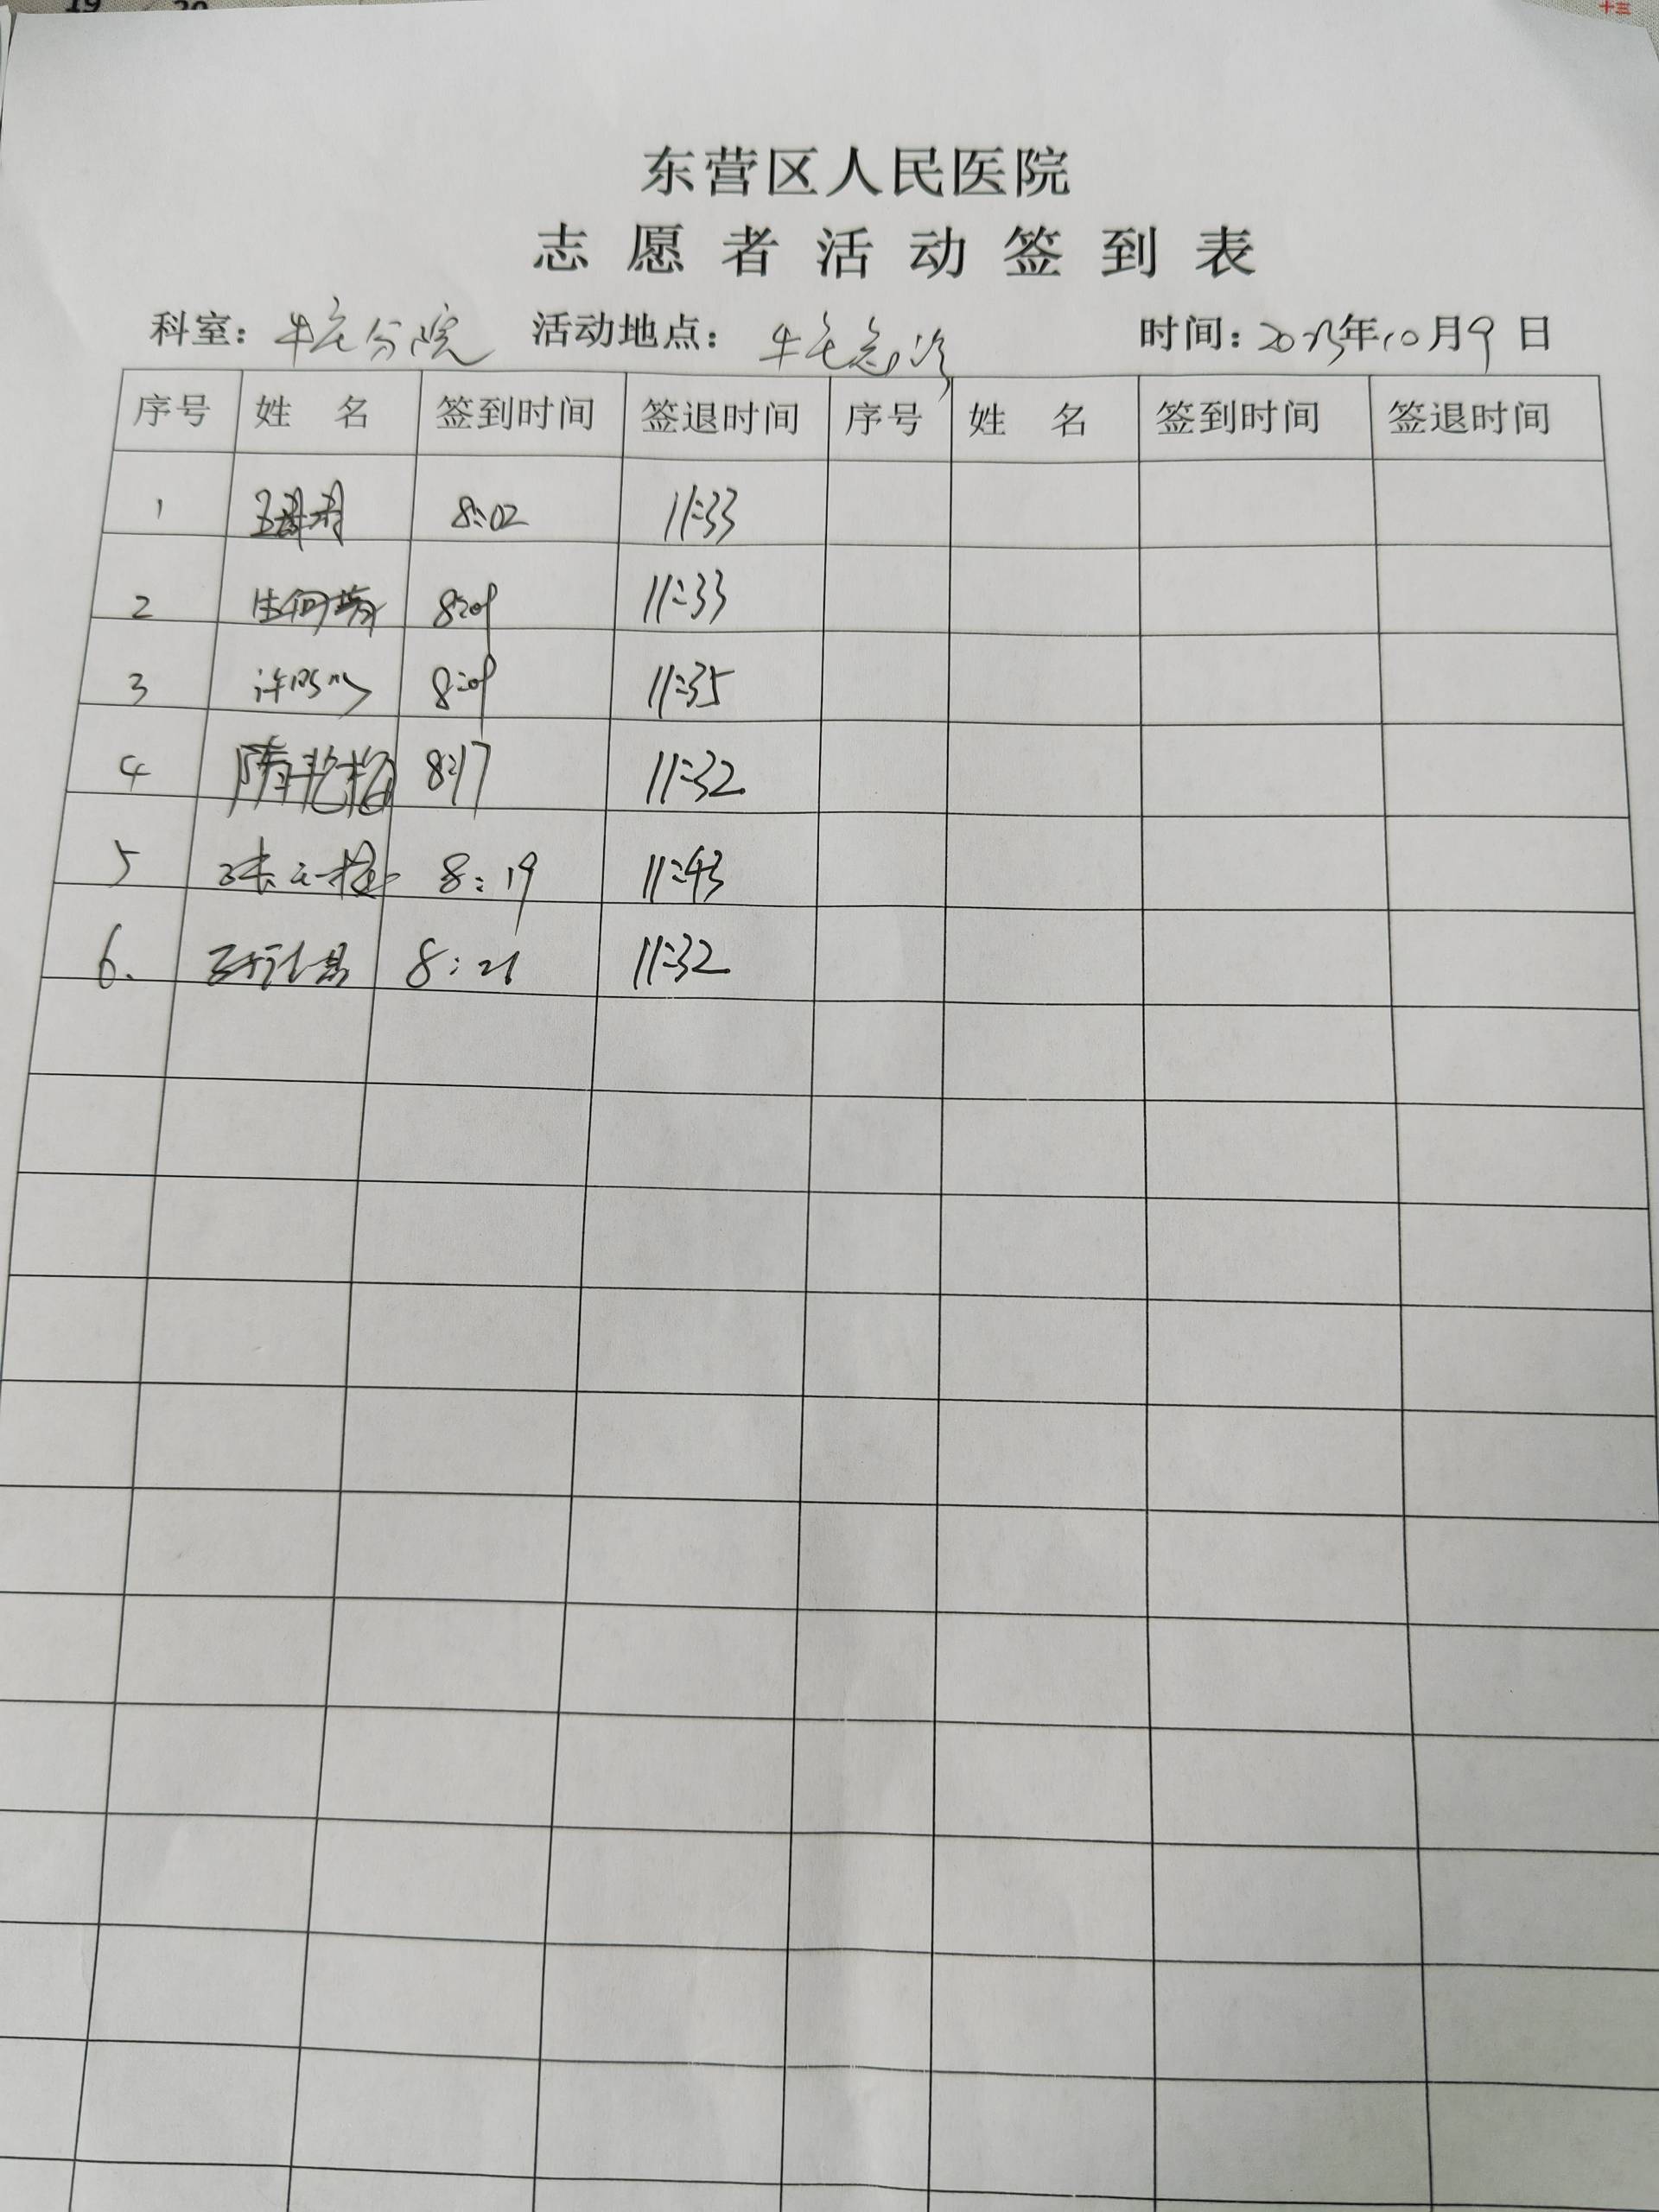 19 20
十三
东营区人民医院
志愿者活动签到表
科室：牛庄分院 活动地点：牛庄急诊 时间：2023年10月9日
序号 姓 名 签到时间 签退时间 序号 姓 名 签到时间 签退时间
1 8:02 11:33
2 11:33
3 11:35
4 8:17 11:32
5 8:19 11:43
6. 8:21 11:32